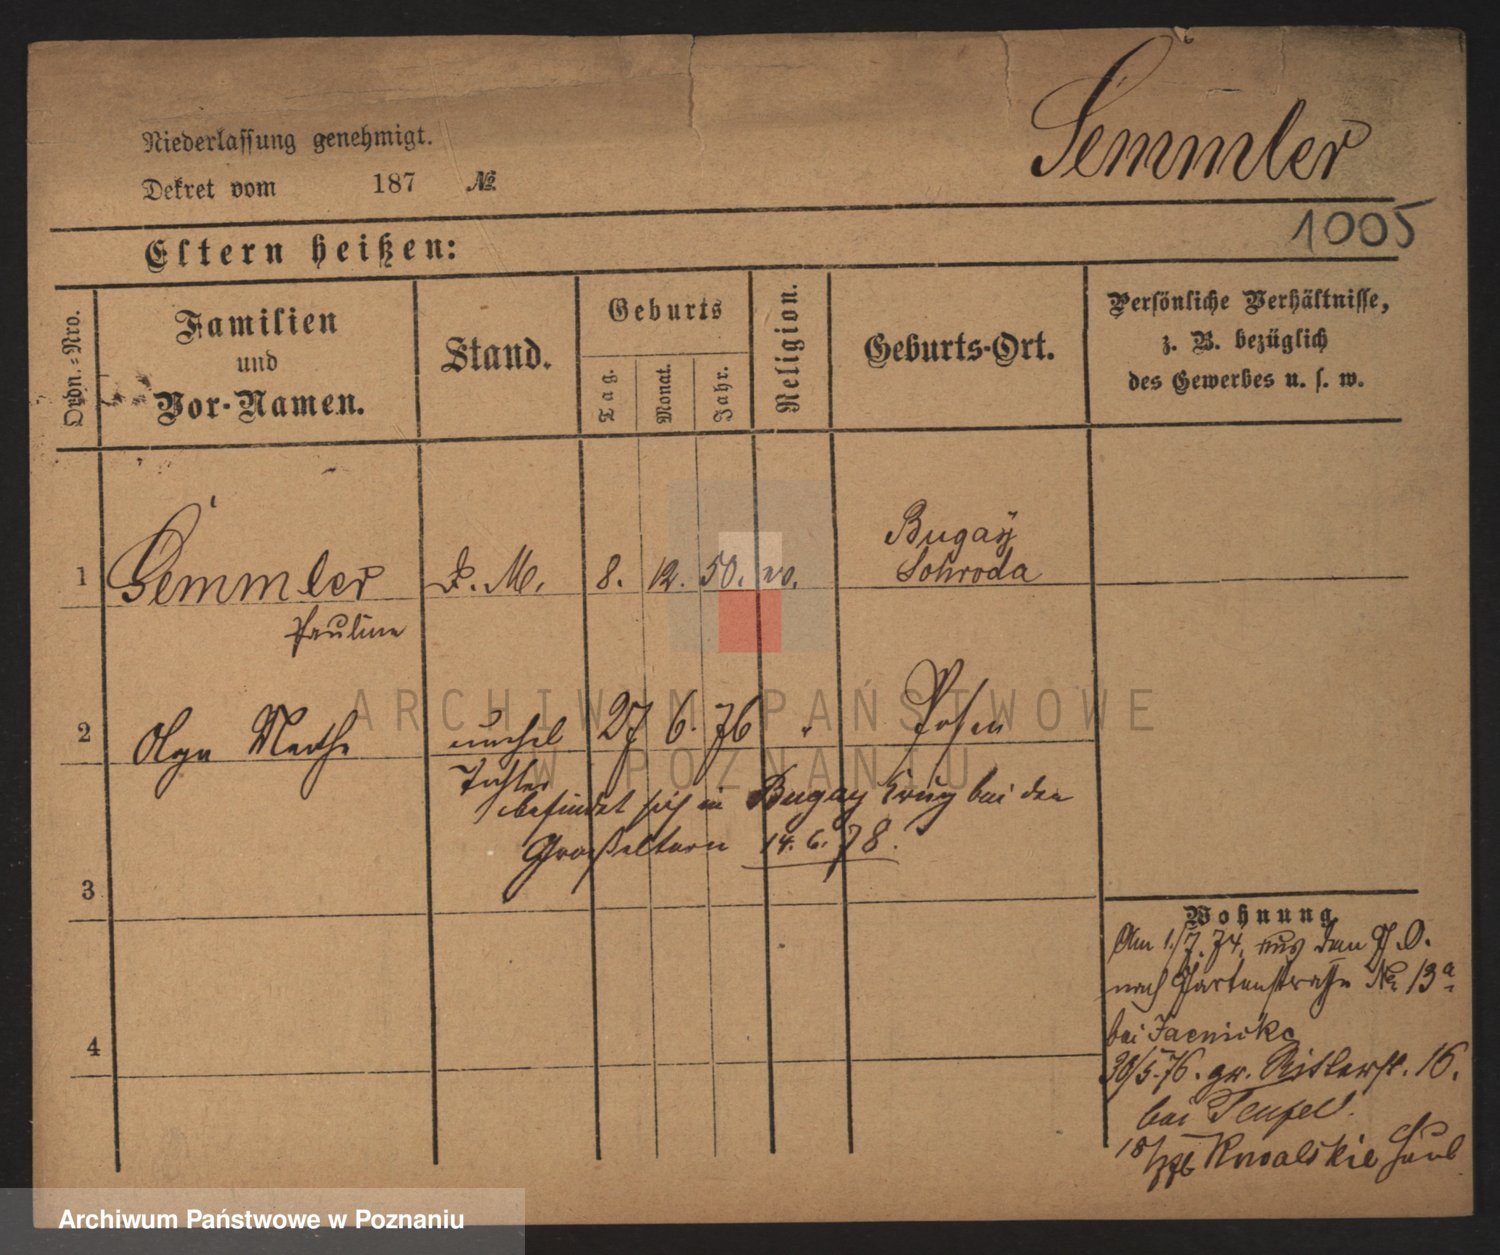 Semmler
Niederlassung genehmigt.
Dekret vom 187 №
1005
Eltern heißen:
Ordn.-Nro.
Familien
und
Vor-Namen.
Stand.
Geburts
Tag.
Monat.
Jahr.
Religion.
Geburts-Ort.
Persönliche Verhältnisse,
z. B. bezüglich
des Gewerbes u. s. w.
1 Semmler D. M. 8. 12. 50. Bugay
Schroda
Pauline
2 Olga Marthe unehel 27 6. 76 " Posen
Tochter
befindet sich in Bugay Krug bei den
Großeltern 14. 6. 78.
3
Wohnung
Am 1./7. 74. aus dem
nach Gartenstraße No. 13a
bei Jaenicke
30/5. 76. gr. Ritterst. 16.
bei Teufel.
Kowalskie
4
ARCHIWUM PAŃSTWOWE
W POZNANIU
Archiwum Państwowe w Poznaniu